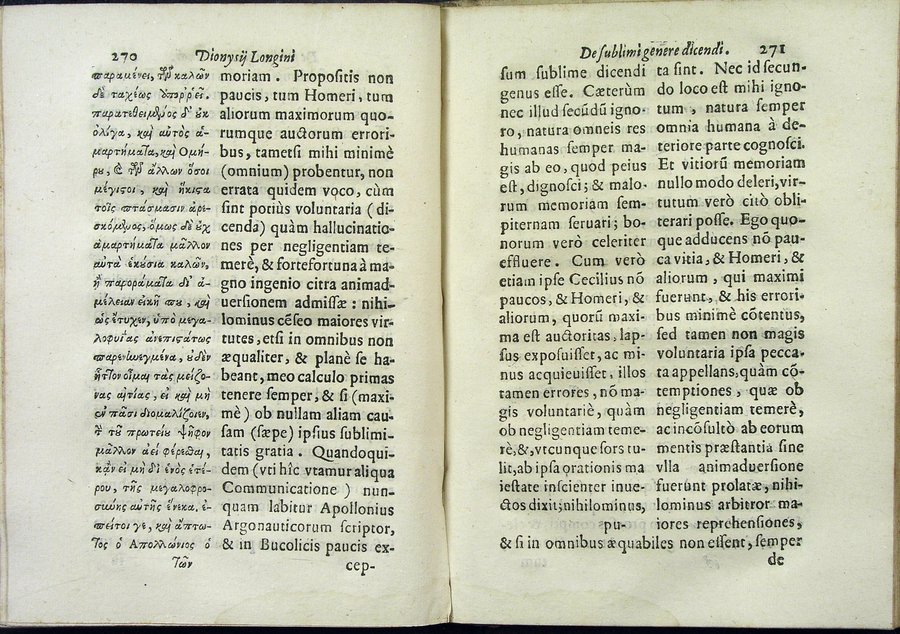 270 Dionysij Longini
παραμένει, τῶν καλῶν
δὲ ταχέως ὑπορρεῖ.
παρατεθειμένος δ' οὐκ
ὀλίγα, καὶ αὐτὸς ἁ-
μαρτήματα, καὶ Ὁμή-
ρου, καὶ τῶν ἄλλων ὅσοι
μέγιστοι, καὶ ἥκιστα
τοῖς πταίσμασιν ἀρε-
σκόμενος, ὅμως δὲ οὐχ
ἁμαρτήματα μᾶλλον
αὐτὰ ἑκούσια καλῶν,
ἢ παροράματα δι' ἀ-
μέλειαν εἰκῆ που, καὶ
ὡς ἔτυχεν, ὑπὸ μεγα-
λοφυΐας ἀνεπιστάτως
παρενηνεγμένα, οὐδὲν
ἧττον οἶμαι τὰς μείζο-
νας αἰτίας, εἰ καὶ μὴ
ἐν πᾶσι διομαλίζοιεν,
τὴν τοῦ πρωτείου ψῆφον
μᾶλλον ἀεὶ φέρεσθαι,
κἂν εἰ μὴ δι' ἑνὸς ἑτέ-
ρου, τῆς μεγαλοφρο-
σύνης αὐτῆς ἕνεκα. ἐ-
πείτοιγε, καὶ ἄπτω-
τος ὁ Ἀπολλώνιος ὁ
τῶν
moriam. Propositis non
paucis, tum Homeri, tum
aliorum maximorum quo-
rumque auctorum errori-
bus, tametsi mihi minimè
(omnium) probentur, non
errata quidem voco, cùm
sint potiùs voluntaria (di-
cenda) quàm hallucinatio-
nes per negligentiam te-
merè, & fortefortuna à ma-
gno ingenio citra animad-
uersionem admissæ: nihi-
lominus cẽseo maiores vir-
tutes, etsi in omnibus non
æqualiter, & planè se ha-
beant, meo calculo primas
tenere semper, & si (maxi-
mè) ob nullam aliam cau-
sam (sæpe) ipsius sublimi-
tatis gratia. Quandoqui-
dem (vti hîc vtamur aliqua
Communicatione) nun-
quam labitur Apollonius
Argonauticorum scriptor,
& in Bucolicis paucis ex-
cep-
De sublimi genere dicendi. 271
sum sublime dicendi
genus esse. Cæterùm
nec illud secũdũ igno-
ro, natura omneis res
humanas semper ma-
gis ab eo, quod peius
est, dignosci; & malo-
rum memoriam sem-
piternam seruari; bo-
norum verò celeriter
effluere. Cum verò
etiam ipse Cecilius nõ
paucos, & Homeri, &
aliorum, quorũ maxi-
ma est auctoritas, lap-
sus exposuisset, ac mi-
nus acquieuisset, illos
tamen errores, nõ ma-
gis voluntariè, quàm
ob negligentiam teme-
rè, &, vtcunque fors tu-
lit, ab ipsa orationis ma
iestate inscienter inue-
ctos dixit; nihilominus,
pu-
ta sint. Nec id secun-
do loco est mihi igno-
tum, natura semper
omnia humana à de-
teriore parte cognosci.
Et vitiorũ memoriam
nullo modo deleri, vir-
tutum verò citò obli-
terari posse. Ego quo-
que adducens nõ pau-
ca vitia, & Homeri, &
aliorum, qui maximi
fuerunt, & his errori-
bus minimè cõtentus,
sed tamen non magis
voluntaria ipsa pecca-
ta appellans, quàm cõ-
temptiones, quæ ob
negligentiam temerè,
ac incõsultò ab eorum
mentis præstantia sine
vlla animaduersione
fuerunt prolatæ, nihi-
lominus arbitror ma-
iores reprehensiones,
& si in omnibus æquabiles non essent, semper
de